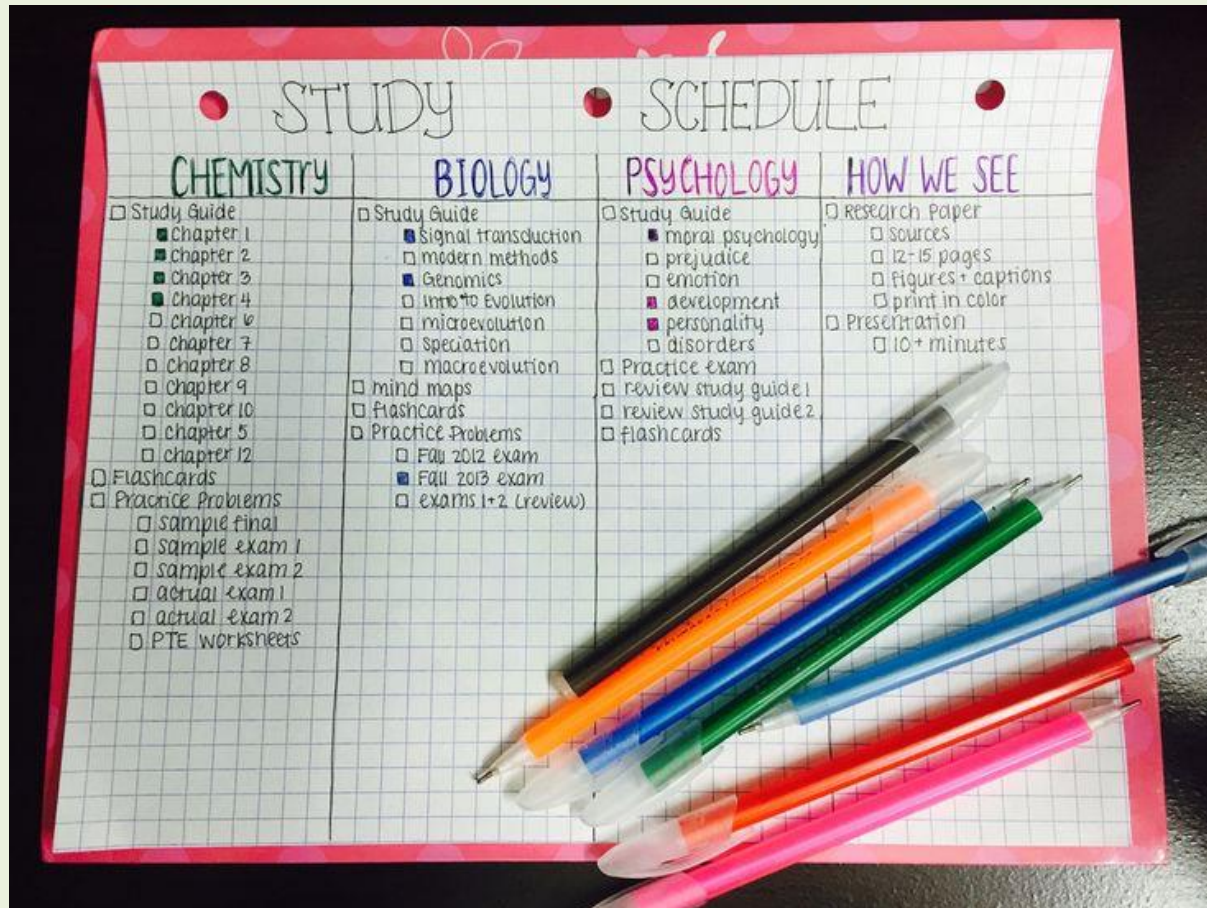 STUDY SCHEDULE
CHEMISTRY
☐ Study Guide
■ Chapter 1
■ Chapter 2
■ Chapter 3
■ Chapter 4
☐ Chapter 6
☐ Chapter 7
☐ Chapter 8
☐ Chapter 9
☐ Chapter 10
☐ Chapter 5
☐ Chapter 12
☐ Flashcards
☐ Practice Problems
☐ sample final
☐ sample exam 1
☐ sample exam 2
☐ actual exam 1
☐ actual exam 2
☐ PTE worksheets
BIOLOGY
☐ Study Guide
■ signal transduction
☐ modern methods
■ Genomics
☐ Intro to Evolution
☐ microevolution
☐ speciation
☐ macroevolution
☐ mind maps
☐ flashcards
☐ Practice Problems
☐ Fall 2012 exam
■ Fall 2013 exam
☐ exams 1+2 (review)
PSYCHOLOGY
☐ Study Guide
■ moral psychology
☐ prejudice
☐ emotion
■ development
■ personality
☐ disorders
☐ Practice exam
☐ review study guide 1
☐ review study guide 2
☐ flashcards
HOW WE SEE
☐ Research Paper
☐ sources
☐ 12-15 pages
☐ figures + captions
☐ print in color
☐ Presentation
☐ 10+ minutes